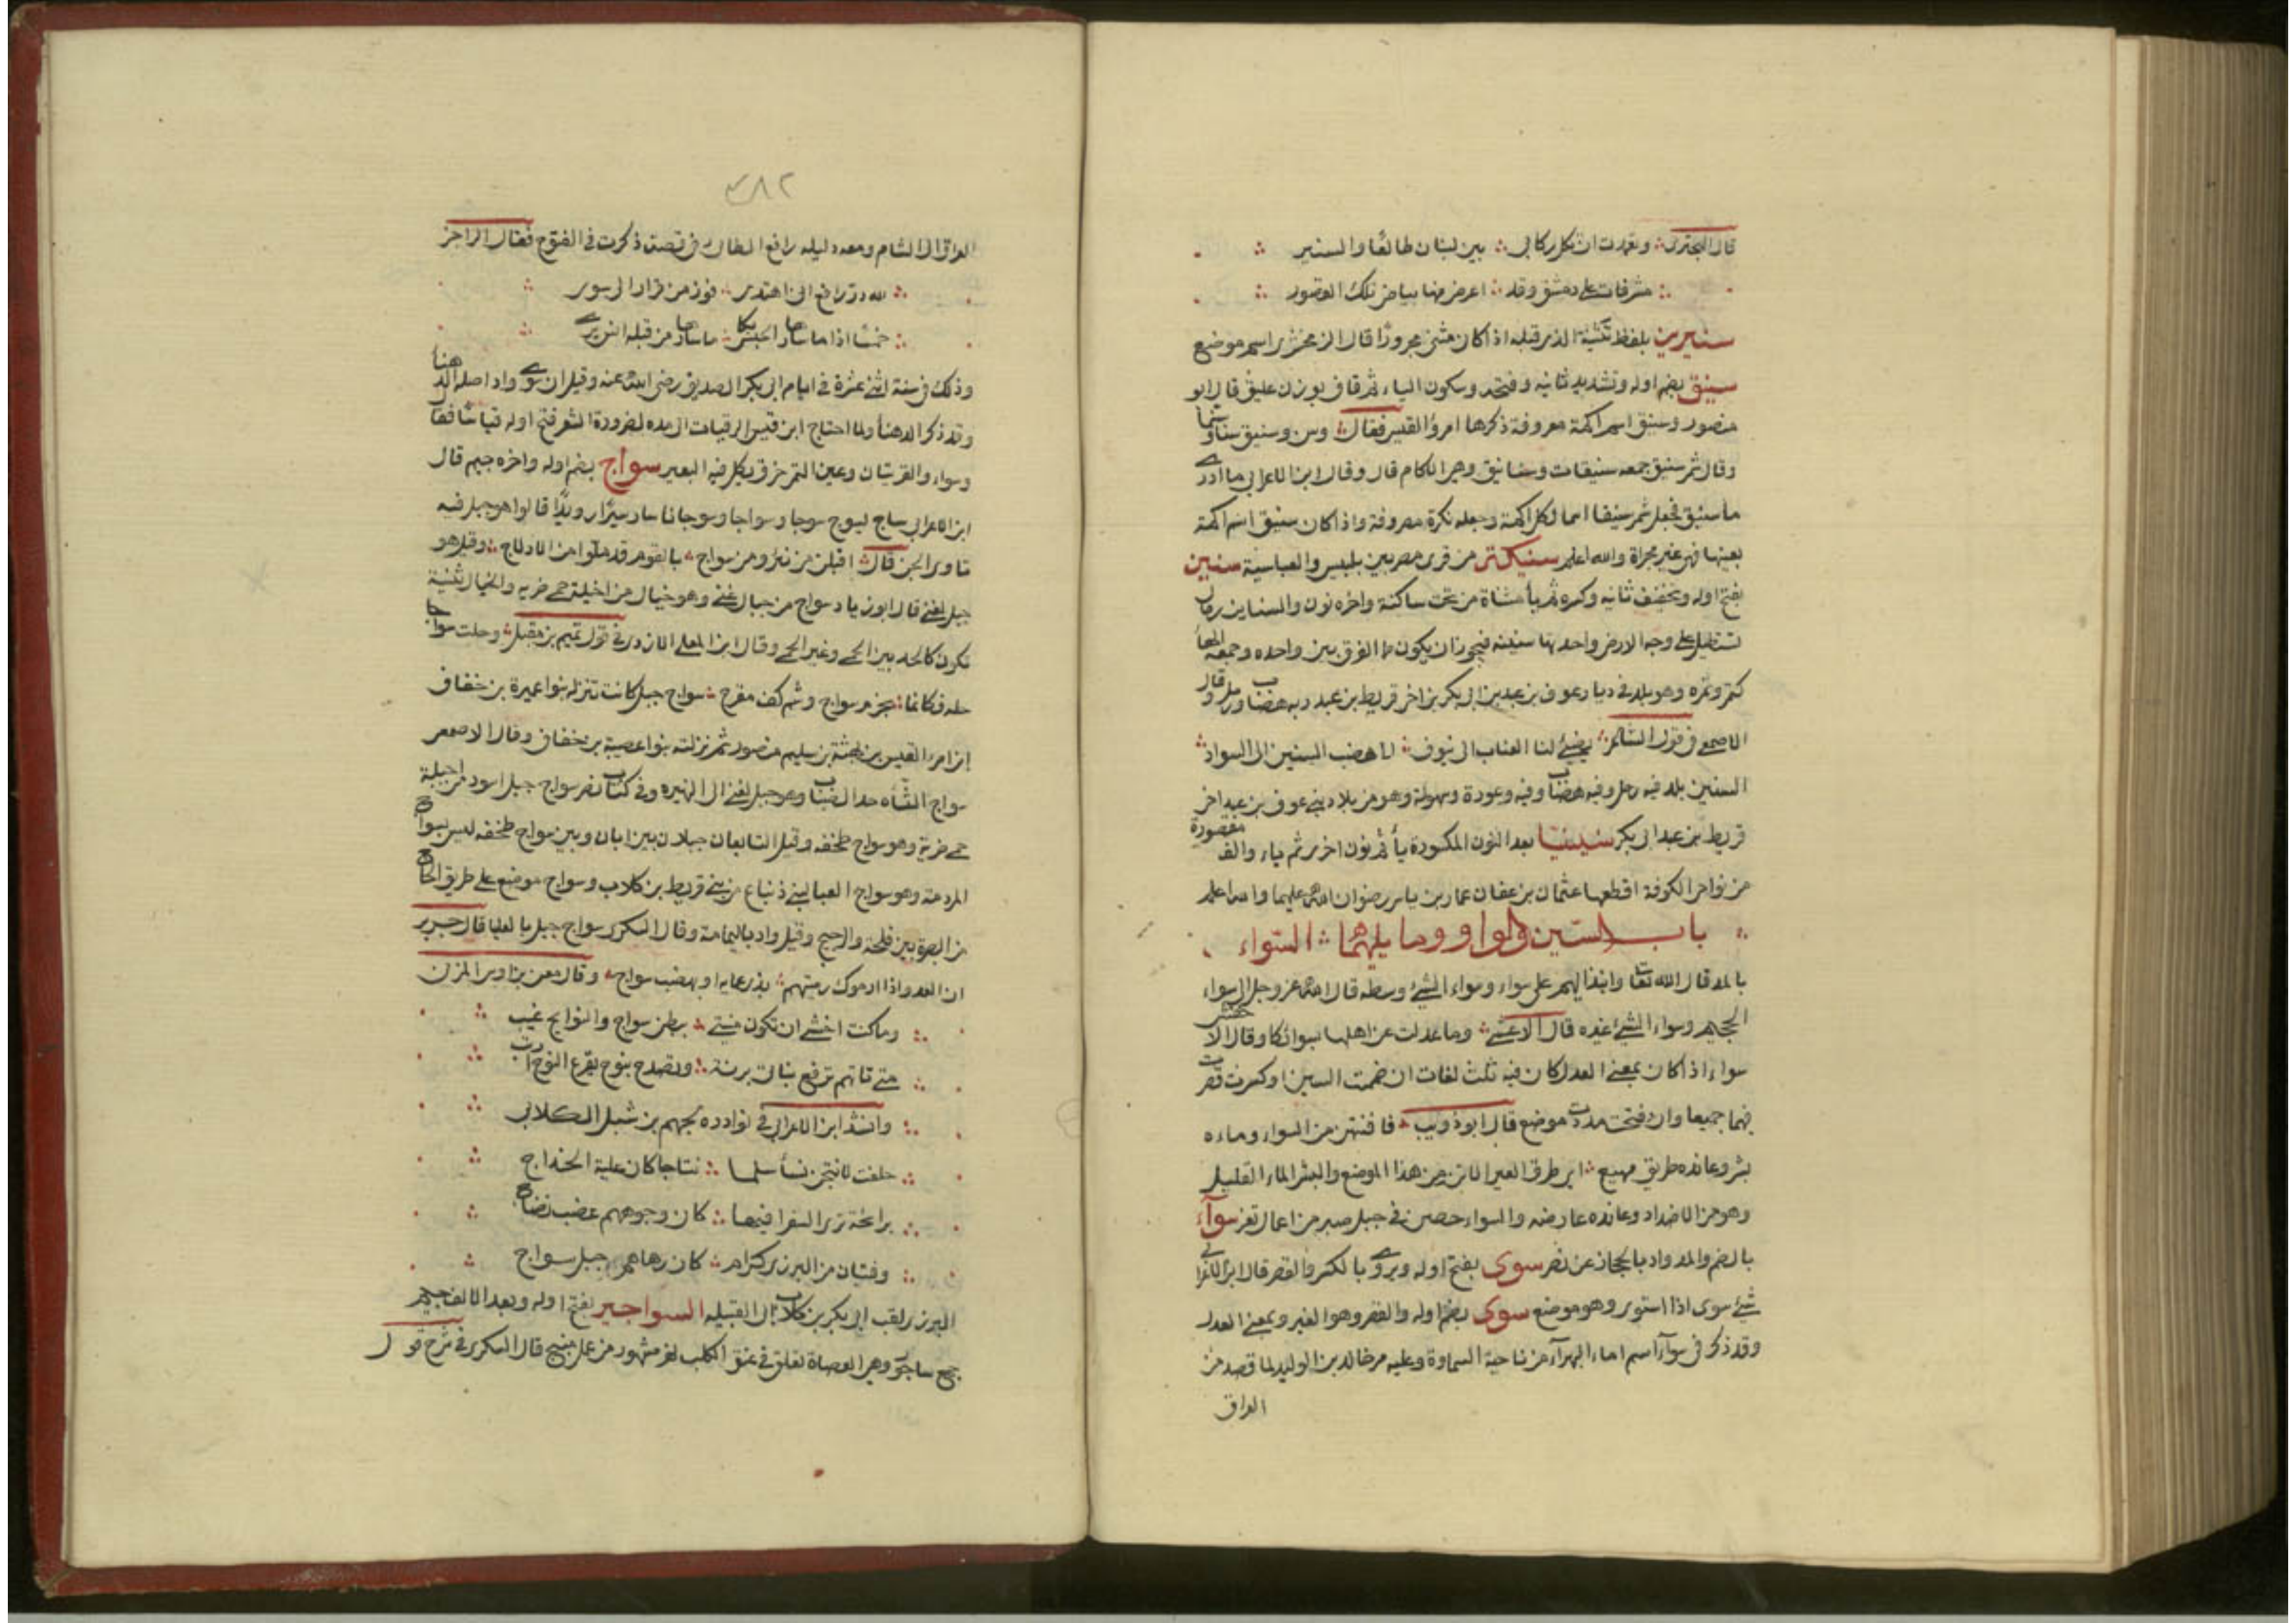 قال البحتري ؞ وتعمدت ان تظل ركابي ؞ بين لبنان طالعا والسنير ؞
؞ مشرفات على دمشق وقد ؞ اعرض منها بياض تلك القصور ؞
سنيرين بلفظ تثنية الذي قبله اذا كان مثنى مجرورا قال الزمخشري اسم موضع
سنيق بضم اوله وتشديد ثانيه وفتحه وسكون الياء ثم قاف بوزن عليق قال ابو
منصور وسنيق اسم اكمة معروفة ذكرها امرؤ القيس فقال ؞ وسن وسنيق سناء وسنما
وقال شمر سنيق جمعه سنيقات وسنانيق وهي الاكام قال وقال ابن الاعرابي ما ادرى
ما سنيق فجعل شمر سنيقا اسما لكل اكمة وجعله نكرة مصروفة واذا كان سنيق اسم اكمة
بعينها فهي غير مجراة والله اعلم سنيكتر من قرى مصر بين بلبيس والعباسية سنين
بفتح اوله وتخفيف ثانيه وكسره ثم يأ مثناة من تحت ساكنة واخره نون والسناين رمال
تستطيل على وجه الارض واحدتها سنينه فيجوز ان يكون مما الفرق بين واحده وجمعه الهاأ
كتمر وتمره وهو بلد في ديار عوف بن عبد بن ابي بكر بن اخى قريط بن عبد وبه هضاب ورمل وقال
الاصمعى في قول الشاعر ؞ يضئ لنا العناب الى ينوف ؞ الى هضب السنين الى السواد ؞
السنين بلد فيه رمل وفيه هضاب وفيه وعورة وسهولة وهو من بلاد بني عوف بن عبد اخى
قريط بن عبد ابى بكر سينينيا بعد النون المكسورة يأ ثم نون اخرى ثم ياء والف مقصورة
من نواحى الكوفة اقطعها عثمان بن عفان عمار بن ياسر رضوان الله عليهما والله اعلم
؞ باب السين والواو وما يليهما ؞ السواء
بالمد قال الله تعا وانبذ اليهم على سواء وسواء الشئ وسطه قال الله عز وجل الى سواء
الجحيم وسواء الشئ غيره قال الاعشى ؞ وما عدلت عن اهلها لسوائكا وقال الاخفش
سواء اذا كان بمعنى العدل كان فيه ثلث لغات ان ضممت السين او كسرت قصرت
فيهما جميعا وان فتحت مددت موضع قال ابو ذويب ؞ فافتنهن من السواء وماءه
بثر وعانده طريق مهيع ؞ اى طرق العير الاتن من هذا الموضع والبثر الماء القليل
وهو من الاضداد وعانده عارضه والسواء حصن في جبل صبر من اعمال تعز سوآء
بالضم والمد واد بالحجاز عن نصر سوى بفتح اوله ويروى بالكسر والقصر قال ابن الاعرابي
شئ سوى اذا استوى وهو موضع سوى بضم اوله والقصر وهو الغير وبمعنى العدل
وقد ذكر فى سوآء اسم ماء لبهرآء من ناحية السماوة وعليه مر خالد بن الوليد لما قصد من
العراق
٤٨٢
العراق الى الشام ومعه دليله رافع الطائى في قصة ذكرت في الفتوح فقال الراجز
؞ لله در رافع انى اهتدى ؞ فوز من قراقر الى سوى ؞
؞ خمسا اذا ما سارها الجبس بكا ؞ ما سارها من قبله انس يرى ؞
وذلك في سنة اثنى عشرة في ايام ابى بكر الصديق رضى الله عنه وقيل ان سوى واد اصله الدهنأ
وقد ذكر الدهنأ ولما احتاج ابن قيس الرقيات الى مده لضرورة الشعر فتح اوله قياسا فقا
وسواء والقريتان وعين التمر خرق يكل فيه البعير سواج بضم اوله واخره جيم قال
ابن الاعرابى ساج يسوج سوجا وسواجا وسوجانا سار سيرا رويدا قالوا هو جبل فيه
تاوى الجن قال ؞ اقبلن من نير ومن سواج ؞ بالقوم قد ملوا من الادلاج ؞ وقيل هو
جبل لغنى قال ابو زياد سواج من جبال غنى وهو خيال من اخيلة حمى ضريه والخيال ثنية
تكون كالحد بين الحمى وغير الحمى وقال ابن المعلى الازدى في قول تميم بن مقبل ؞ وحلت سواجا
حله فكانما ؞ بحزم سواج وشم كف مقرح ؞ سواج جبل كانت تنزله بنوا عميرة بن خفاف
ابن امرء القيس بن بهثة بن سليم منصور ثم نزلته بنوا عصية بن خفاف وقال الاصمعى
سواج النتاءه حد الضباب وهو جبل لغنى الى النميره وفى كتاب نصر سواج جبل اسود من اخيلة
حمى ضرية وهو سواج طخفه وقيل النايعان جبلان بين ابان وبين سواج طخفه ليس بسواج
المردمة وهو سواج اللعبا لبنى زنباع من بنى قريط بن كلاب وسواج موضع على طريق الحاج
من البصرة بين فلجه والزجيج وقيل واد باليمامة وقال السكرى سواج جبل بالعاليا قال جرير
ان العدو اذا ارموك رميتهم ؞ بذرى عماية او بهضب سواج ؞ وقال معن بن اوس المزنى
؞ وما كنت اخشى ان تكون منيتى ؞ ببطن سواج والنوايح غيب ؞
؞ متى تاتهم ترفع بناتى برنة ؞ وتصدح بنوح يفزع النوح ارنب ؞
؞ وانشد ابن الاعرابى في نوادره لجهم بن شبل الكلابى ؞
؞ حلفت لانتجن نسأ سلمى ؞ نتاجا كان غلبة الخداج ؞
؞ برائحة ترى السفرا فيها ؞ كان وجوههم عصب نضاج ؞
؞ وفتيان من البزرى كرام ؞ كان زهاهم جبل سواج ؞
البزرى لقب ابى بكر بن كلاب ابى القبيله السواجير بفتح اوله وبعد الالف جيم
جمع ساجور وهى العصاة تعلق في عنق الكلب نهر مشهور من عمل منبج قال السكرى في شرح قول